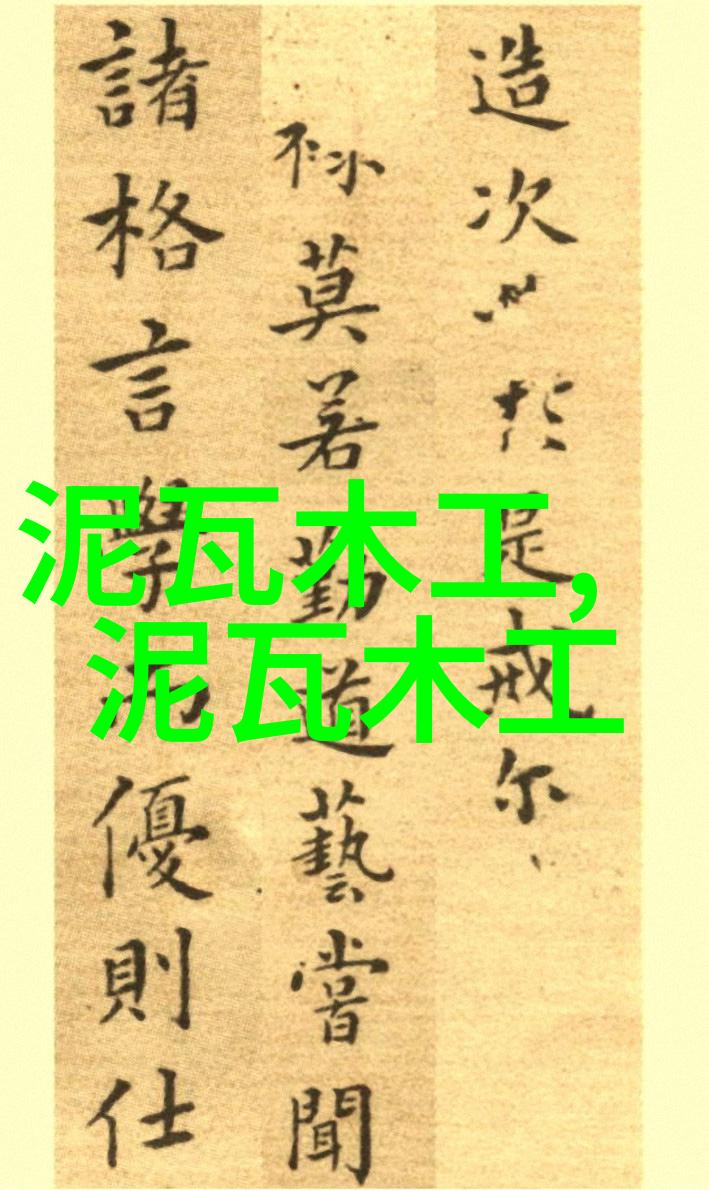 泥瓦木工,
泥瓦木工
造次於是戒尔
莫若勤道藝嘗聞
諸格言學而優則仕